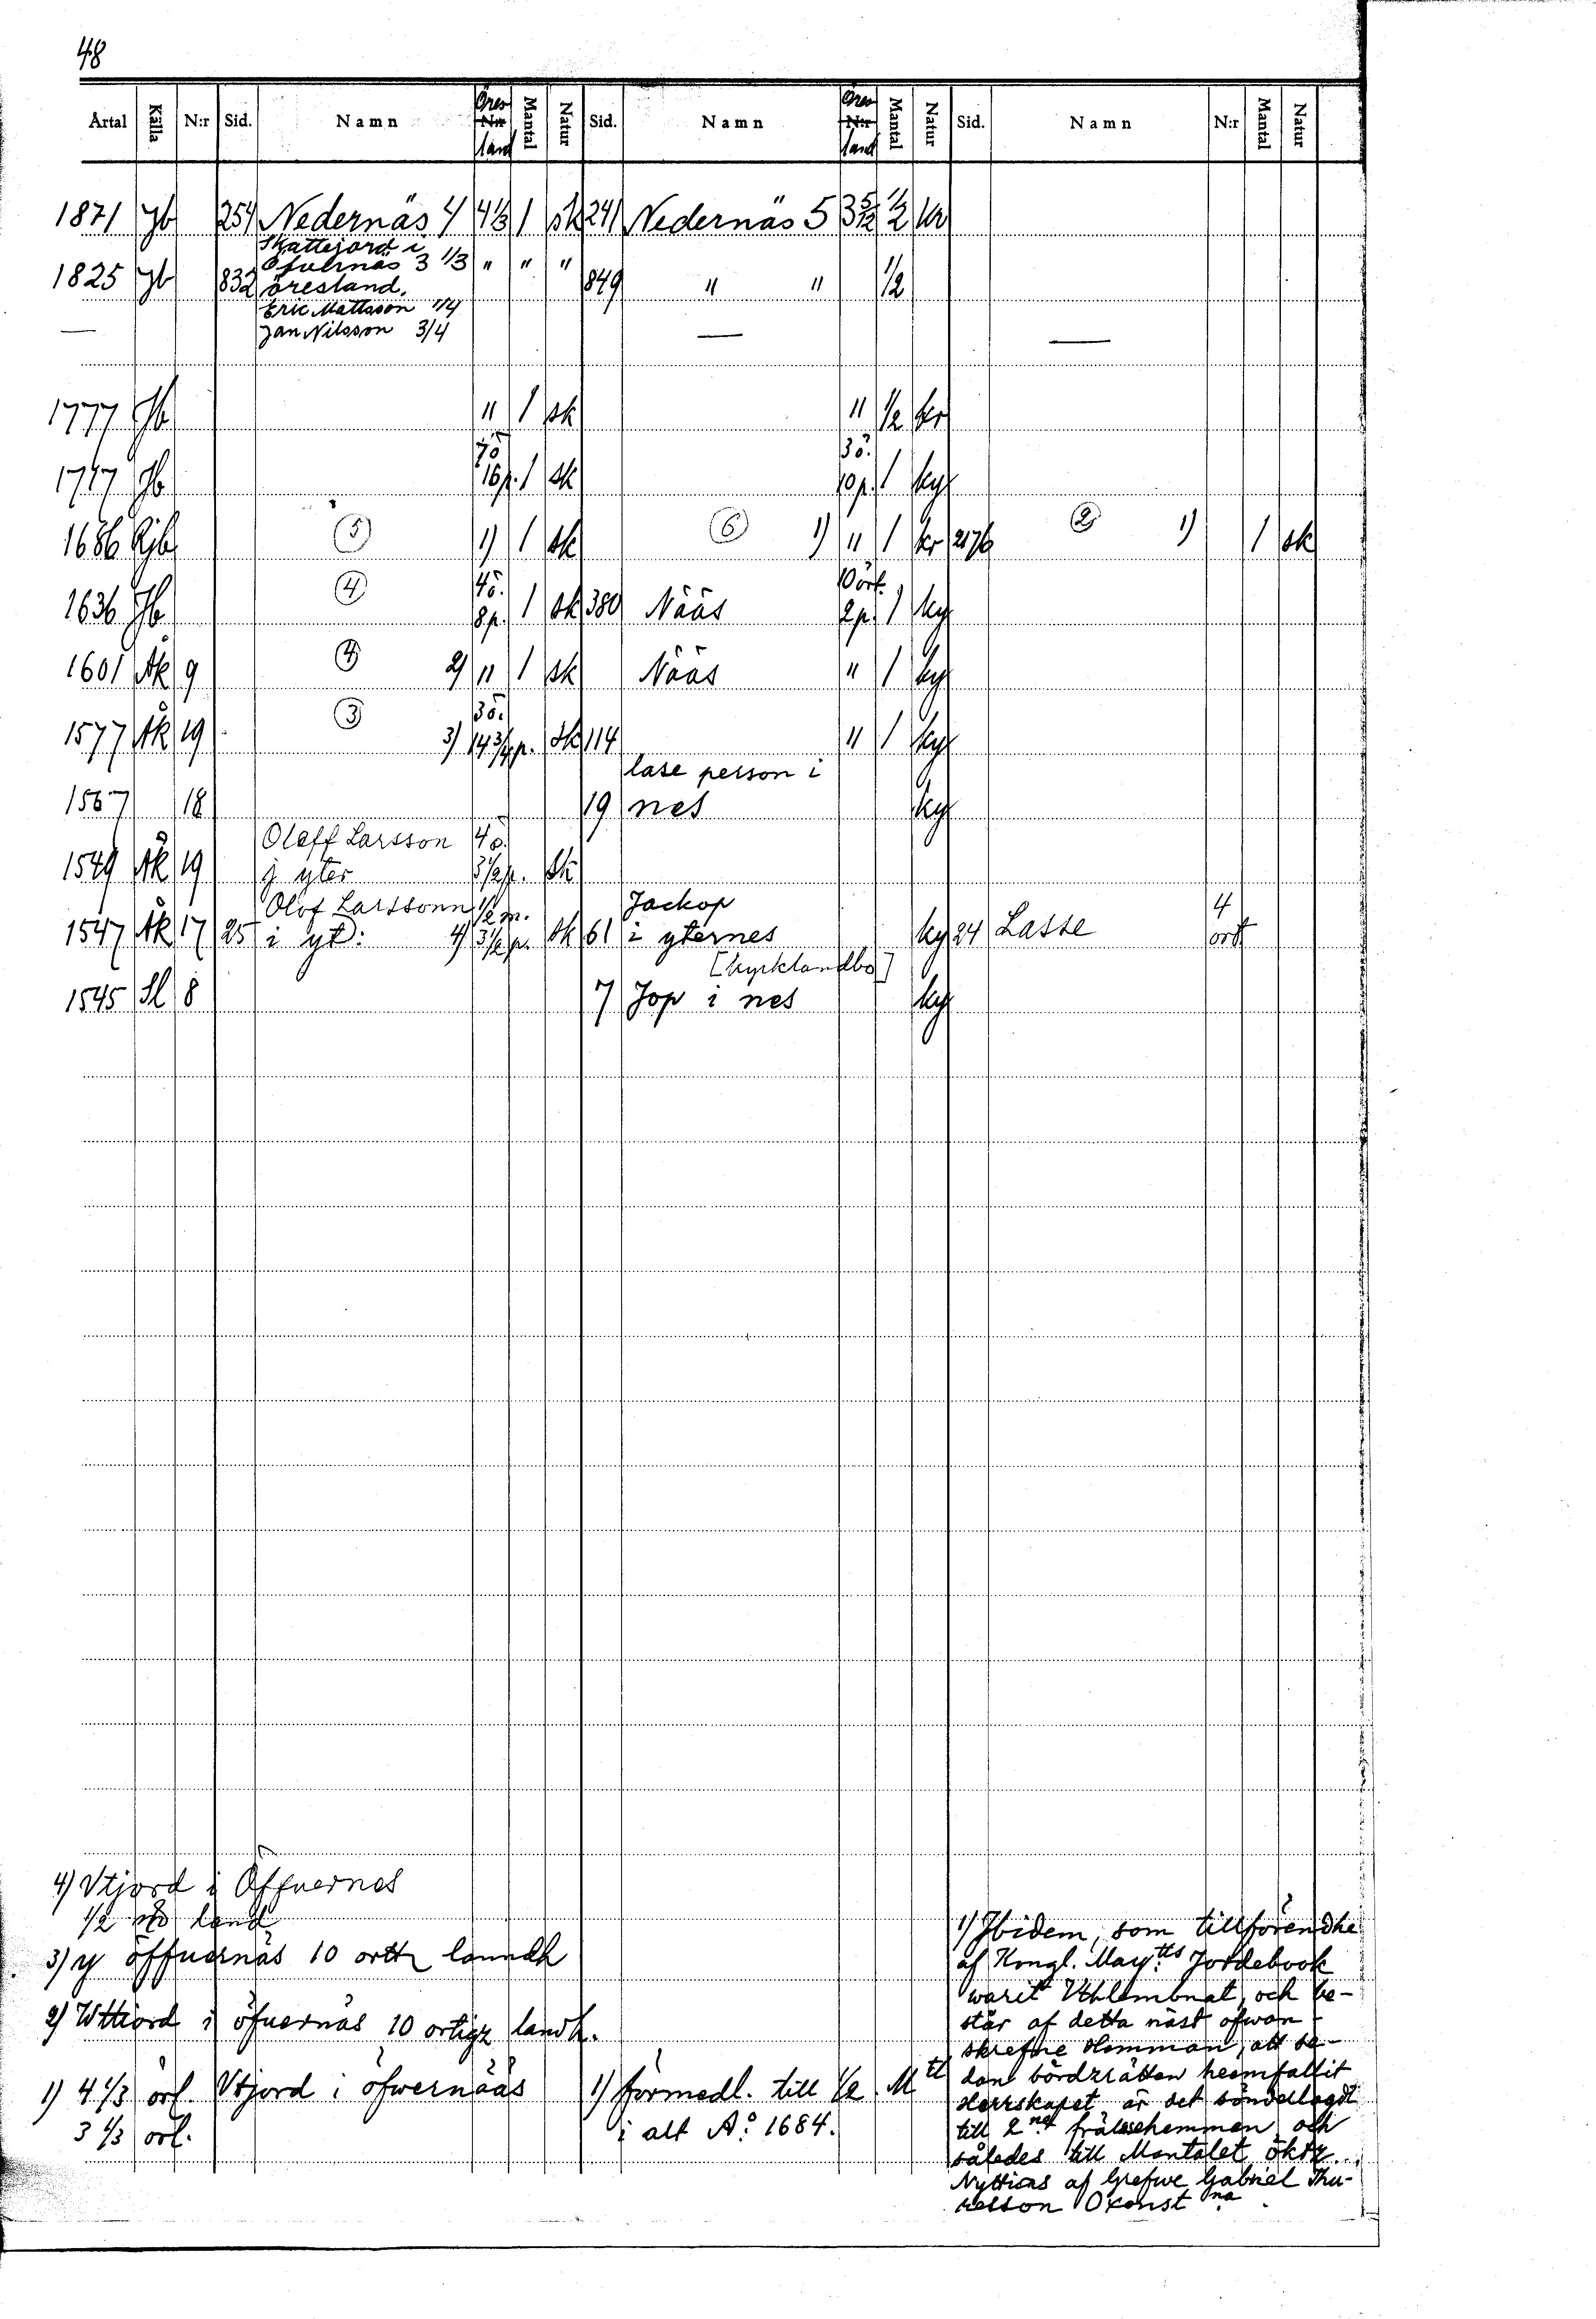 48
Årtal Källa N:r Sid. Namn Öres land Mantal Natur Sid. Namn Öres land Mantal Natur Sid. Namn N:r Mantal Natur
1871 Jb 254 Nedernäs 4 4 1/3 1 sk 241 Nedernäs 5 3 5/12 1/2 kr
Skattejord i
Öfvernäs 3 1/3 " " "
1825 Jb 832 öresland. 849 " " 1/2
Eric Mattsson 1/4
Jan Nilsson 3/4
1777 Jb " 1 sk " 1/2 kr
1717 Jb 16p. 1 sk 3ö. 10p. 1 ky
1686 Rjb (5) 1) 1 sk (6) 1) " 1 kr 2176 (2) 1) 1 sk
1636 Jb (4) 4ö. 8p. 1 sk 380 Nääs 10 ört. 2p. 1 ky
1601 Åk 9 (4) 2) " 1 sk Nääs " 1 ky
1577 Åk 19 (3) 3ö. 3) 14 3/4 p. sk 114 " 1 ky
lase person i
1567 18 19 nes ky
Olaff Larsson 4ö.
1549 Åk 19 j yter 3 1/2 p. sk
Olof Larssonn 1/2 m. Jackop 4
1547 Åk 17 25 i yt: 4) 3 1/2 p. sk 61 i yternes ky 24 Lasse ort
[kyrklandbo]
1545 Sl 8 7 Jop i nes ky
4) Vtjord i Öffuernes
1/2 land
3) y öffuernäs 10 ortt lanndh
2) Wttiord i öfuernäs 10 ortigz landh.
1) 4 1/3 örl. Vtjord i öfwernääs
3 1/3 örl.
1) förmedl. till 1/2 Mtl
i alt A:o 1684.
1) Ibidem, som tillförendhe
af Kongl. May:tts Jordebook
warit Vthlembnat, och be-
står af detta näst ofwan
skrefne Hemman, att se-
dan bördzrätten heemfallit
Herrskapet är det söndellagdt
till 2:ne frälsehemman och
således till Mantalet ökts.
Nyttias af Grefwe Gabriel Thu-
resson Oxenst:na